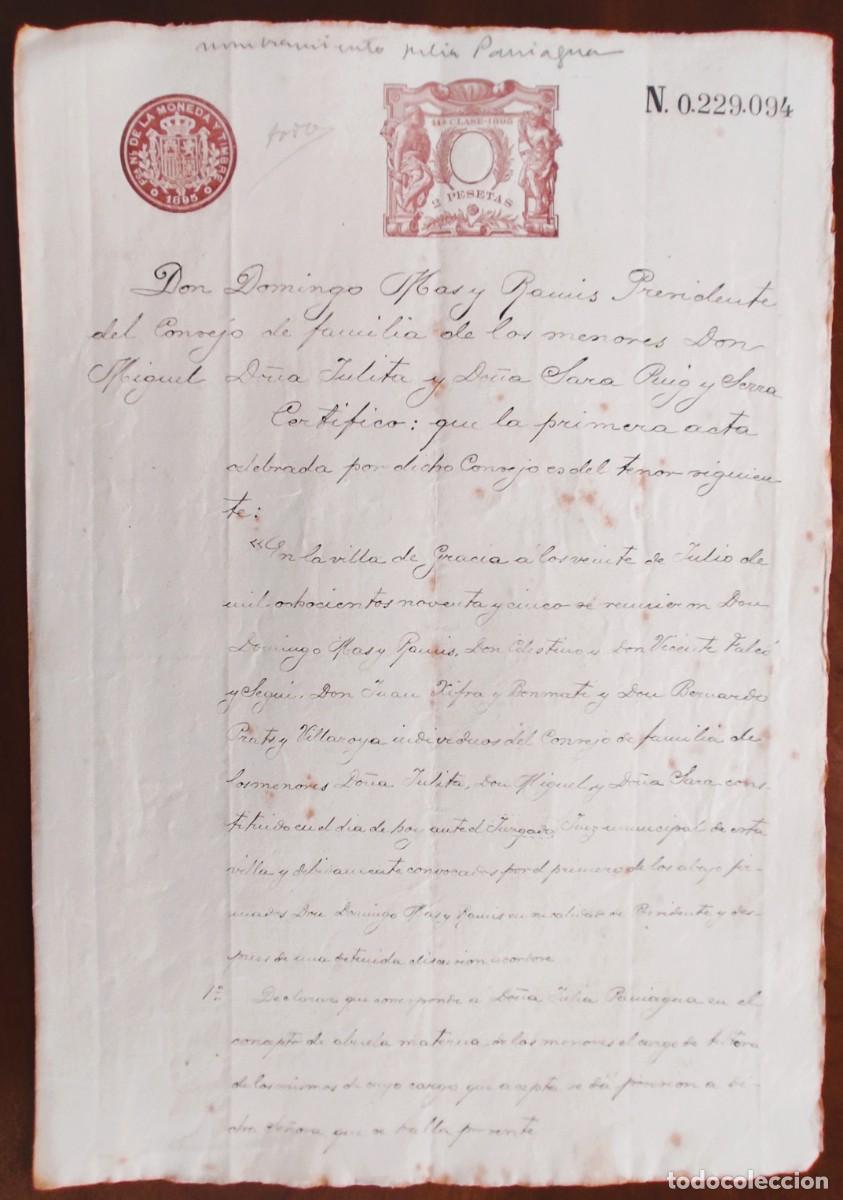 nombramiento Julia Paniagua
FCA. NL. DE LA MONEDA Y TIMBRE
1895
11ª CLASE-1895
2 PESETAS
N. 0.229.094
Don Domingo Mas y Ramis Presidente
del Consejo de familia de los menores Don
Miguel Doña Julita y Doña Sara Puig y Serra
Certifico: que la primera acta
celebrada por dicho Consejo es del tenor siguien
te:
"En la villa de Gracia á los veinte de Julio de
mil ochocientos noventa y cinco se reunieron Don
Domingo Mas y Ramis, Don Celestino y Don Vicente Falcó
y Seguí, Don Juan Xifra y Bonmatí y Don Bernardo
Prats y Villaroya individuos del Consejo de familia de
los menores Doña Julita, Don Miguel y Doña Sara cons-
tituido en el dia de hoy ante el Juzgado Juez municipal de esta
villa y debidamente convocados por el primero de los abajo fir-
mados Don Domingo Mas y Ramis en su calidad de Presidente y des-
pues de una detenida discusion acordose
1º Declarar que corresponde á Doña Julia Paniagua en el
concepto de abuela materna de los menores el cargo de tutora
de los mismos de cuyo cargo que acepta se dá posesion a di-
cha Señora que se halla presente
todocoleccion